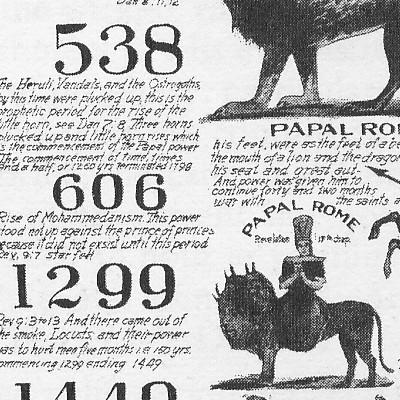 Dan 8:11,12
538
The Heruli, Vandals, and the Ostrogoths,
by this time were plucked up, this is the
prophetic period for the rise of the
little horn, see Dan 7:8, Three horns
plucked up and little horn rises which
is the commencement of the Papal power
The commencement of time, times
and a half, or 1260 yrs terminated 1798
606
Rise of Mohammedanism. This power
stood not up against the prince of princes
because it did not exsist until this period
Rev. 9:7 star fell
1299
Rev 9:3 to 13 And there came out of
the smoke, Locusts, and their power
was to hurt men five months i.e. 150 yrs.
commencing 1299 ending 1449
1449
PAPAL RO
his feet, were as the feet of a be
the mouth of a lion and the dragon
his seat and great aut-
And power was given him to
continue forty and two months
war with the saints a
PAPAL ROME
Revelation 17th chap.